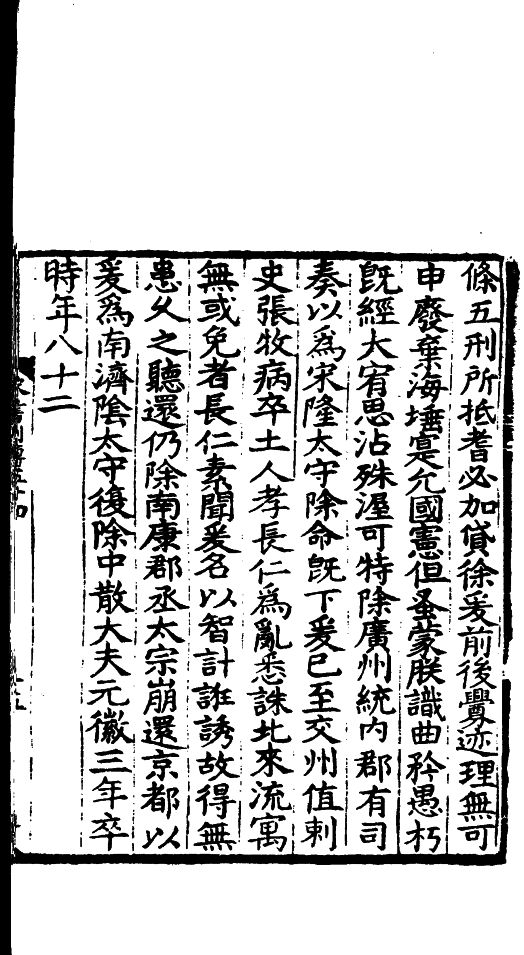 條五刑所抵耆必加貸徐爰前後釁迹理無可
申廢棄海埵寔允國憲但蚤蒙朕識曲矜愚朽
旣經大宥思沾殊渥可特除廣州統內郡有司
奏以爲宋隆太守除命旣下爰已至交州值刺
史張牧病卒土人李長仁爲亂悉誅北來流寓
無或免者長仁素聞爰名以智計誑誘故得無
患久之聽還仍除南康郡丞太宗崩還京都以
爰爲南濟陰太守復除中散大夫元徽三年卒
時年八十二